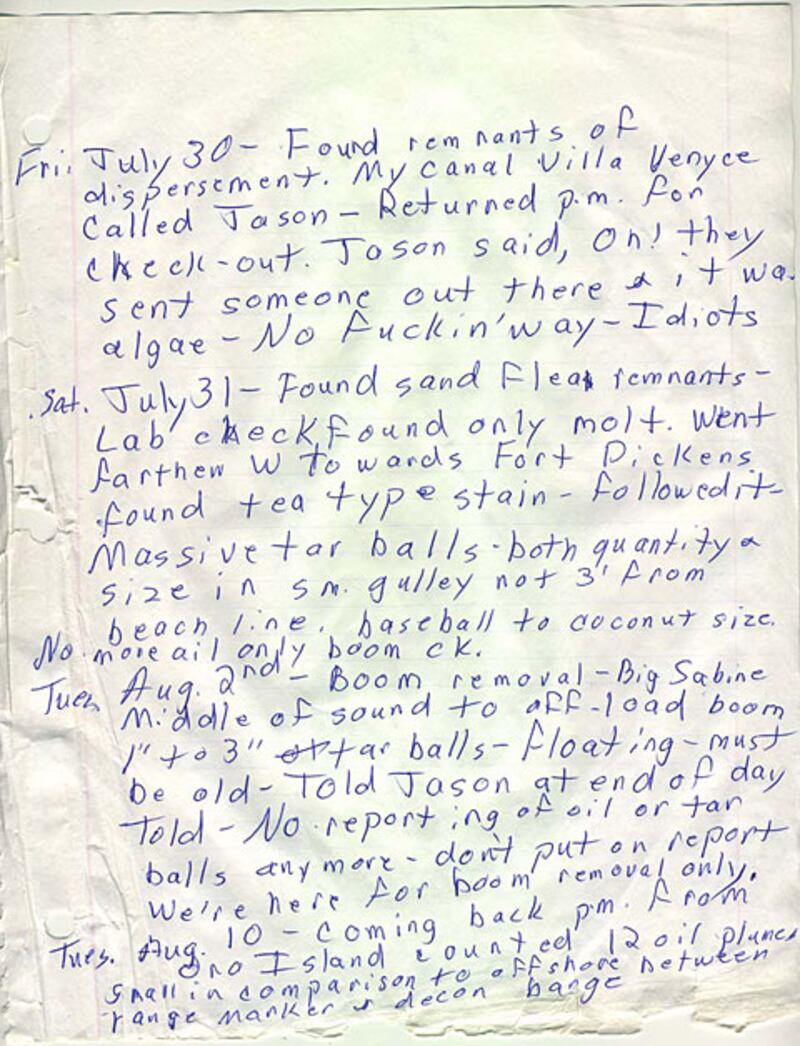 Fri. July 30 - Found remnants of
dispersement. My canal Villa Venyce
Called Jason - Returned p.m. for
check-out. Jason said, Oh! they
sent someone out there & it wa.
algae - No Fuckin' way - Idiots
Sat. July 31 - Found sand Flea remnants -
Lab check found only molt. Went
farther W Towards Fort Dickens
found tea type stain - followed it -
Massive tar balls - both quantity &
size in sm. gulley not 3' from
beach line. baseball to coconut size.
No more oil only boom ck.
Tues. Aug. 2nd - Boom removal - Big Sabine
Middle of sound to off-load boom
1" to 3" tar balls - Floating - must
be old - Told Jason at end of day
Told - No reporting of oil or tar
balls anymore - don't put on report
We're here for boom removal only.
Tues. Aug. 10 - Coming back p.m. from
Island counted 12 oil plumes
small in comparison to offshore between
range marker & decon barge